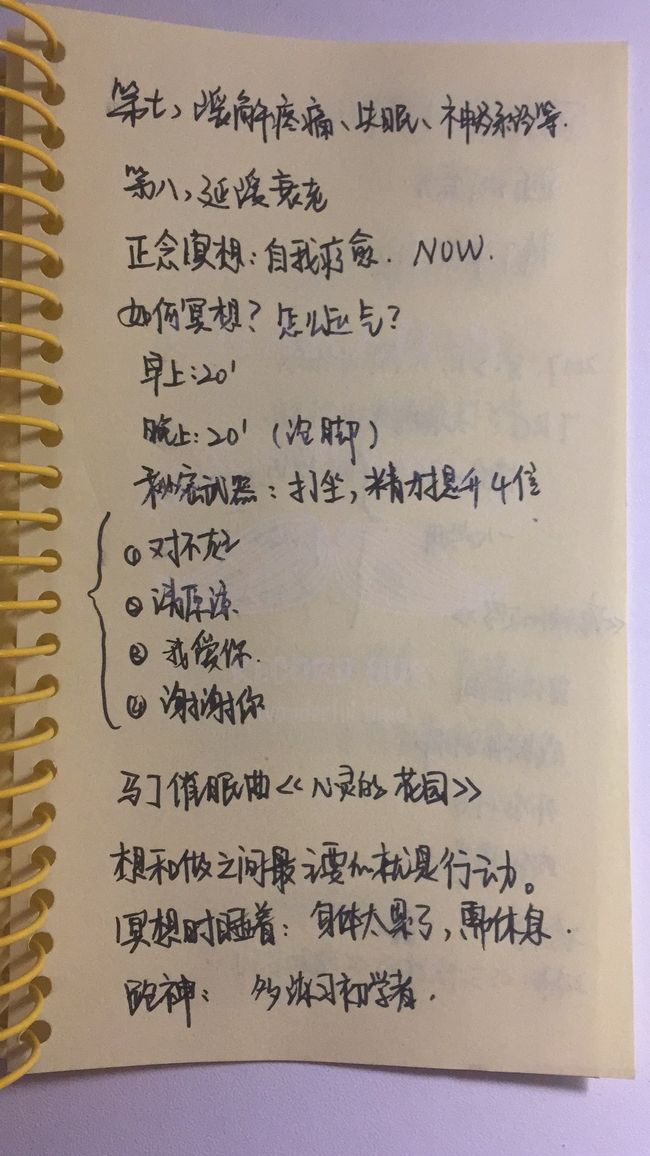 第七，缓解疼痛、失眠、神经系统等.
第八，延缓衰老
正念冥想：自我疗愈. NOW.
如何冥想？怎么运气？
早上：20'
晚上：20'（泡脚）
秘密武器：打坐，精力提升4倍.
① 对不起
② 请原谅.
③ 我爱你.
④ 谢谢你
马丁催眠曲《心灵的花园》
想和做之间最主要的就是行动力。
冥想时睡着：身体太累了，需休息.
跑神：多练习初学者.